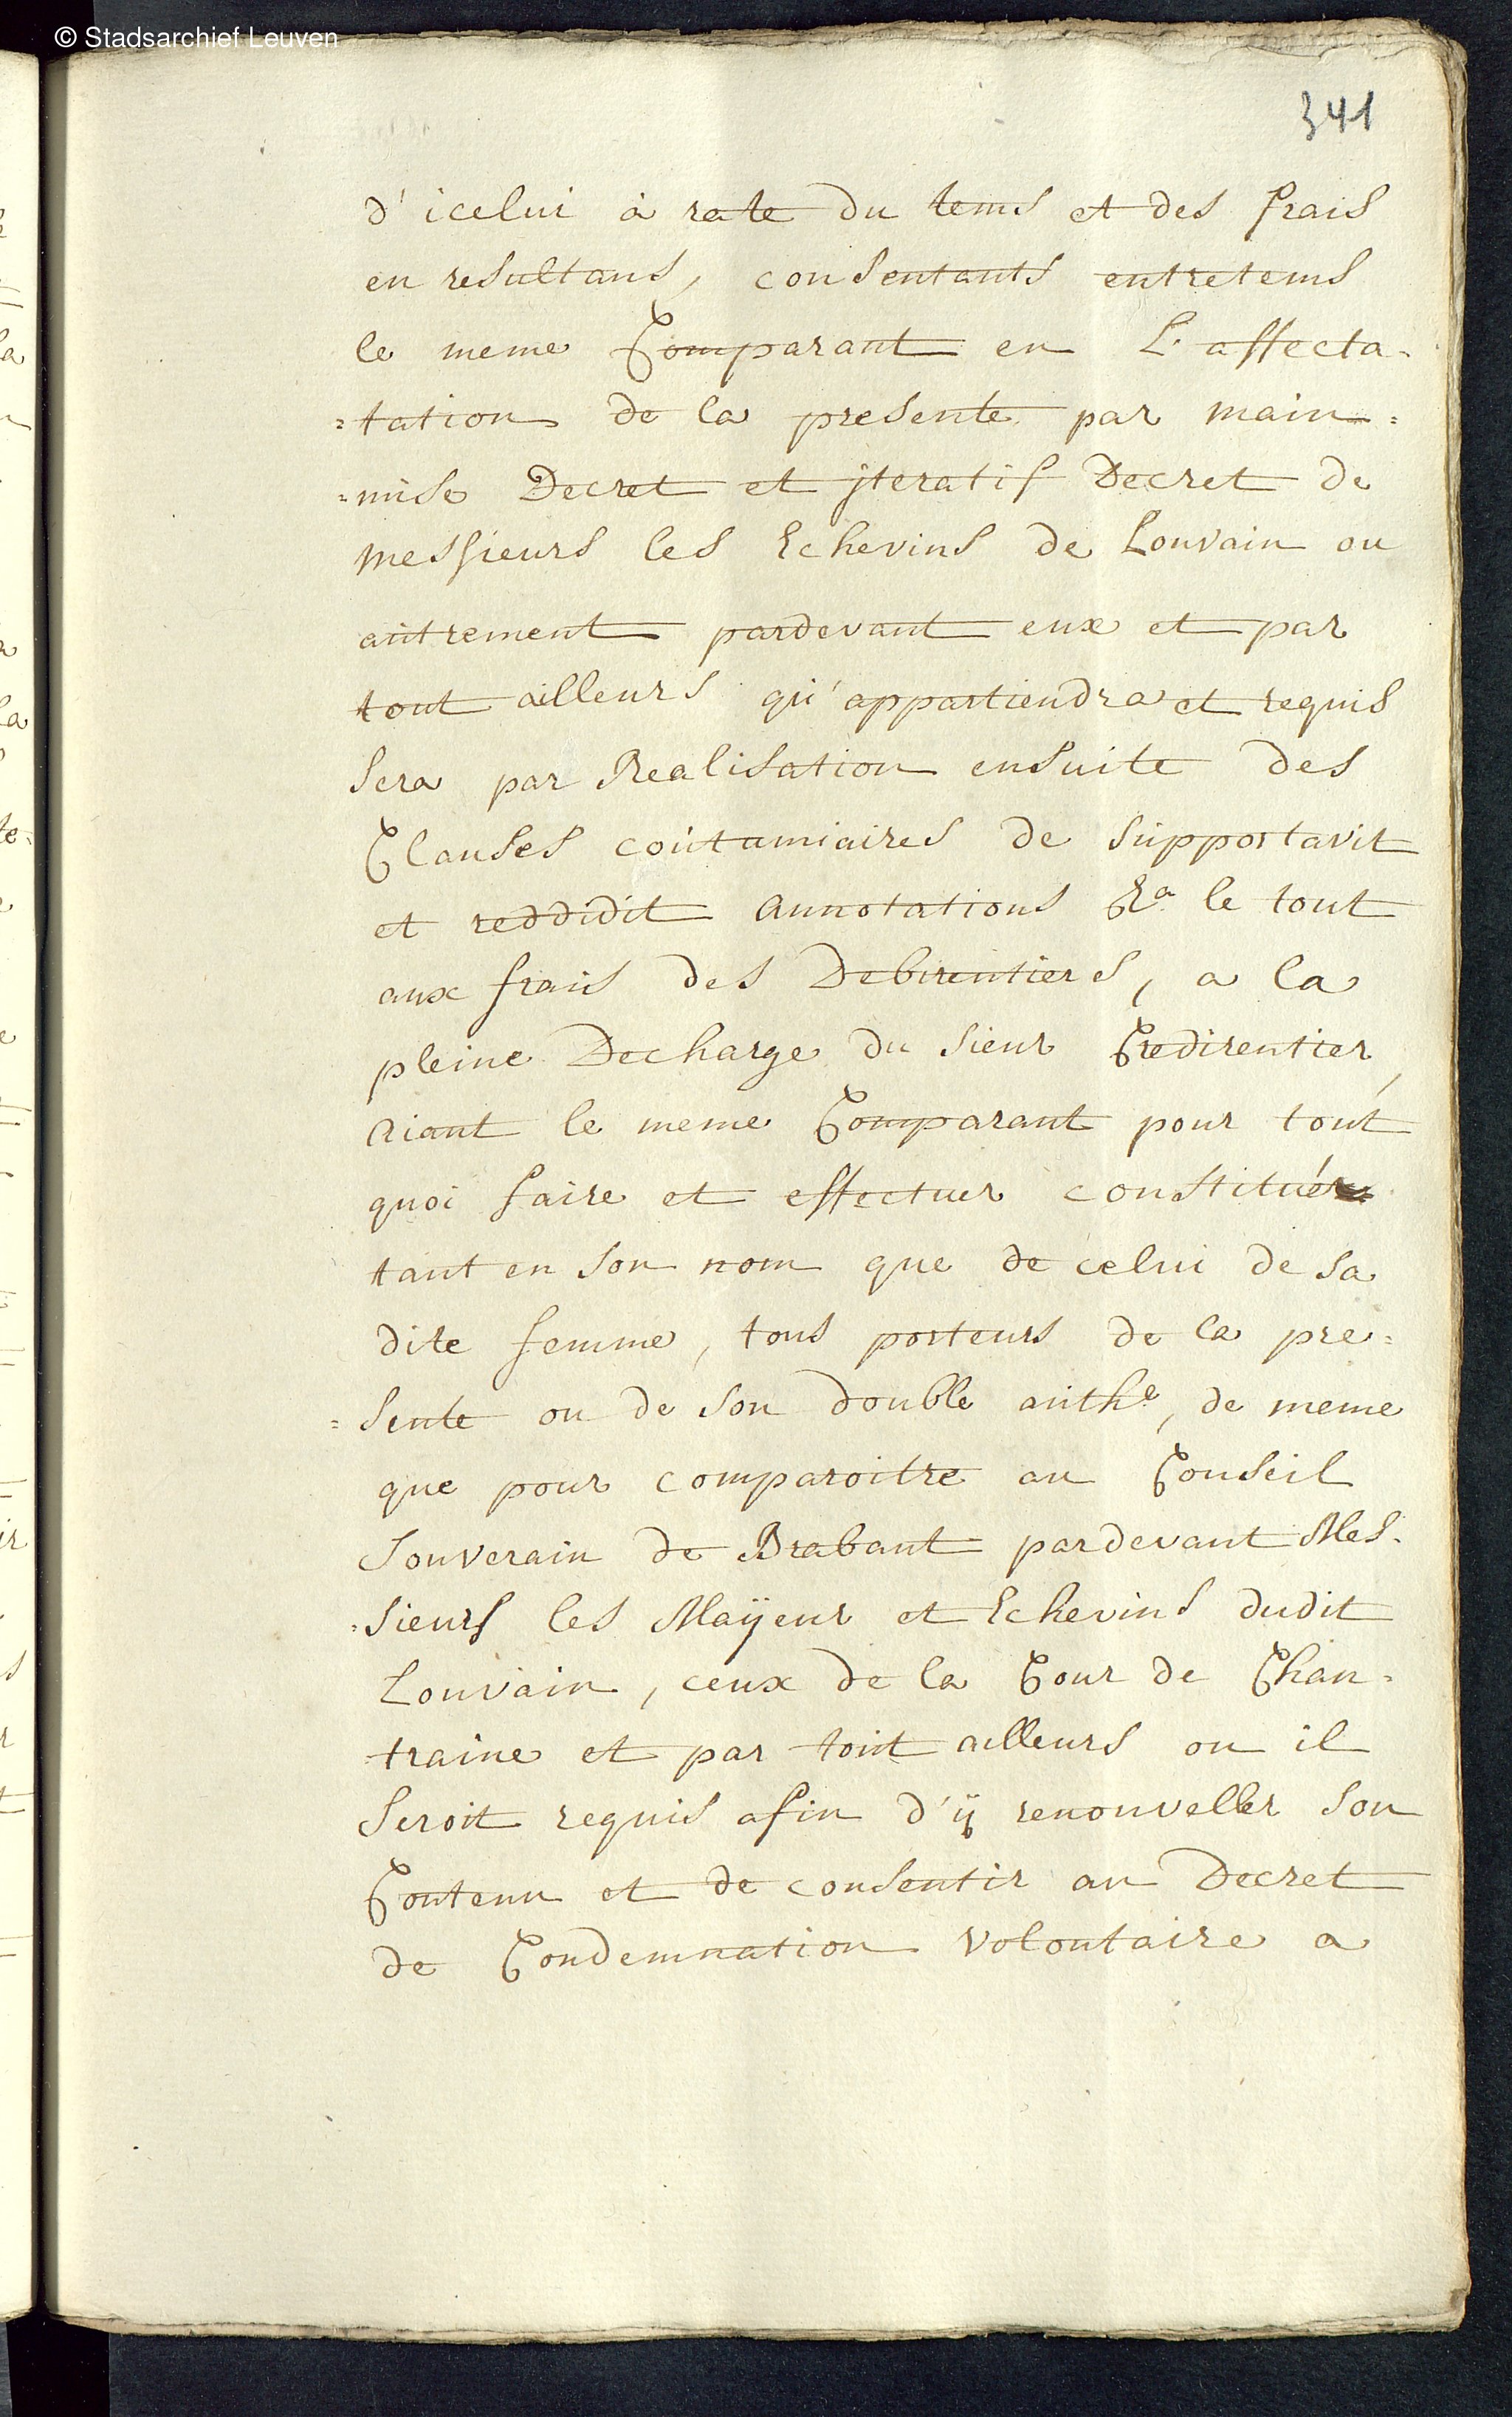 © Stadsarchief Leuven
341
d'icelui à rate du tems et des frais
en resultans, consentants entretems
le meme Comparant en L'affecta-
=tation de la presente par main=
=mise Decret et jteratif Decret de
Messieurs les Echevins de Louvain ou
autrement pardevant eux et par
tout ailleurs qu'appartiendra et requis
sera par Realisation ensuite des
Clauses coutumiaires de supportavit
et reddidit annotations &a le tout
aux frais des Debirentiers, a la
pleine Decharge du Sieur Credirentier,
aiant le meme Comparant pour tout
quoi faire et effectuer constitué
tant en son nom que de celui de sa
dite femme, tous porteurs de la pre=
=sente ou de son double authe, de meme
que pour comparoitre au Conseil
Souverain de Brabant pardevant Mes-
=sieurs les Maÿeur et Echevins dudit
Louvain, ceux de la Cour de Chan-
=traine et par tout ailleurs ou il
seroit requis afin d'ÿ renouveller son
Contenu et de consentir au Decret
de Condemnation volontaire a